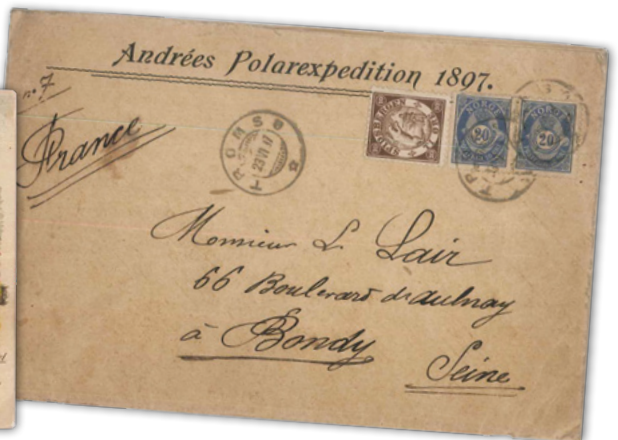 Andrées Polarexpedition 1897.
n° 7
France
TROMSØ
23 VI 97
NORGE
20
NORGE
20
Monsieur L. Lair
66 Boulevard de Aulnay
à Bondy
Seine